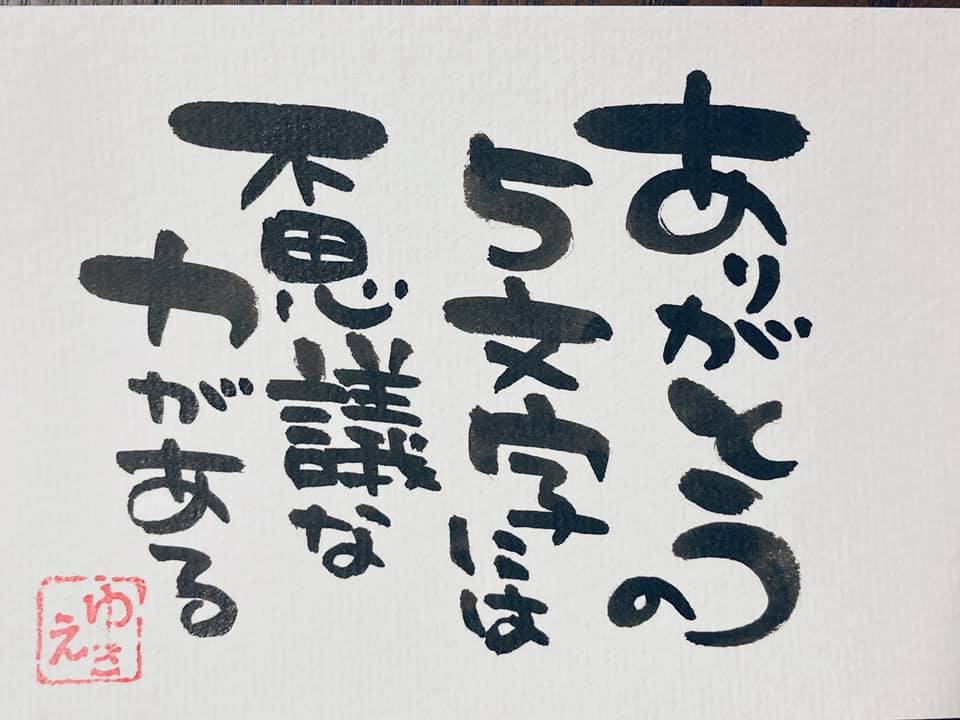 ありがとうの
5文字には
不思議な
力がある
ゆきえ